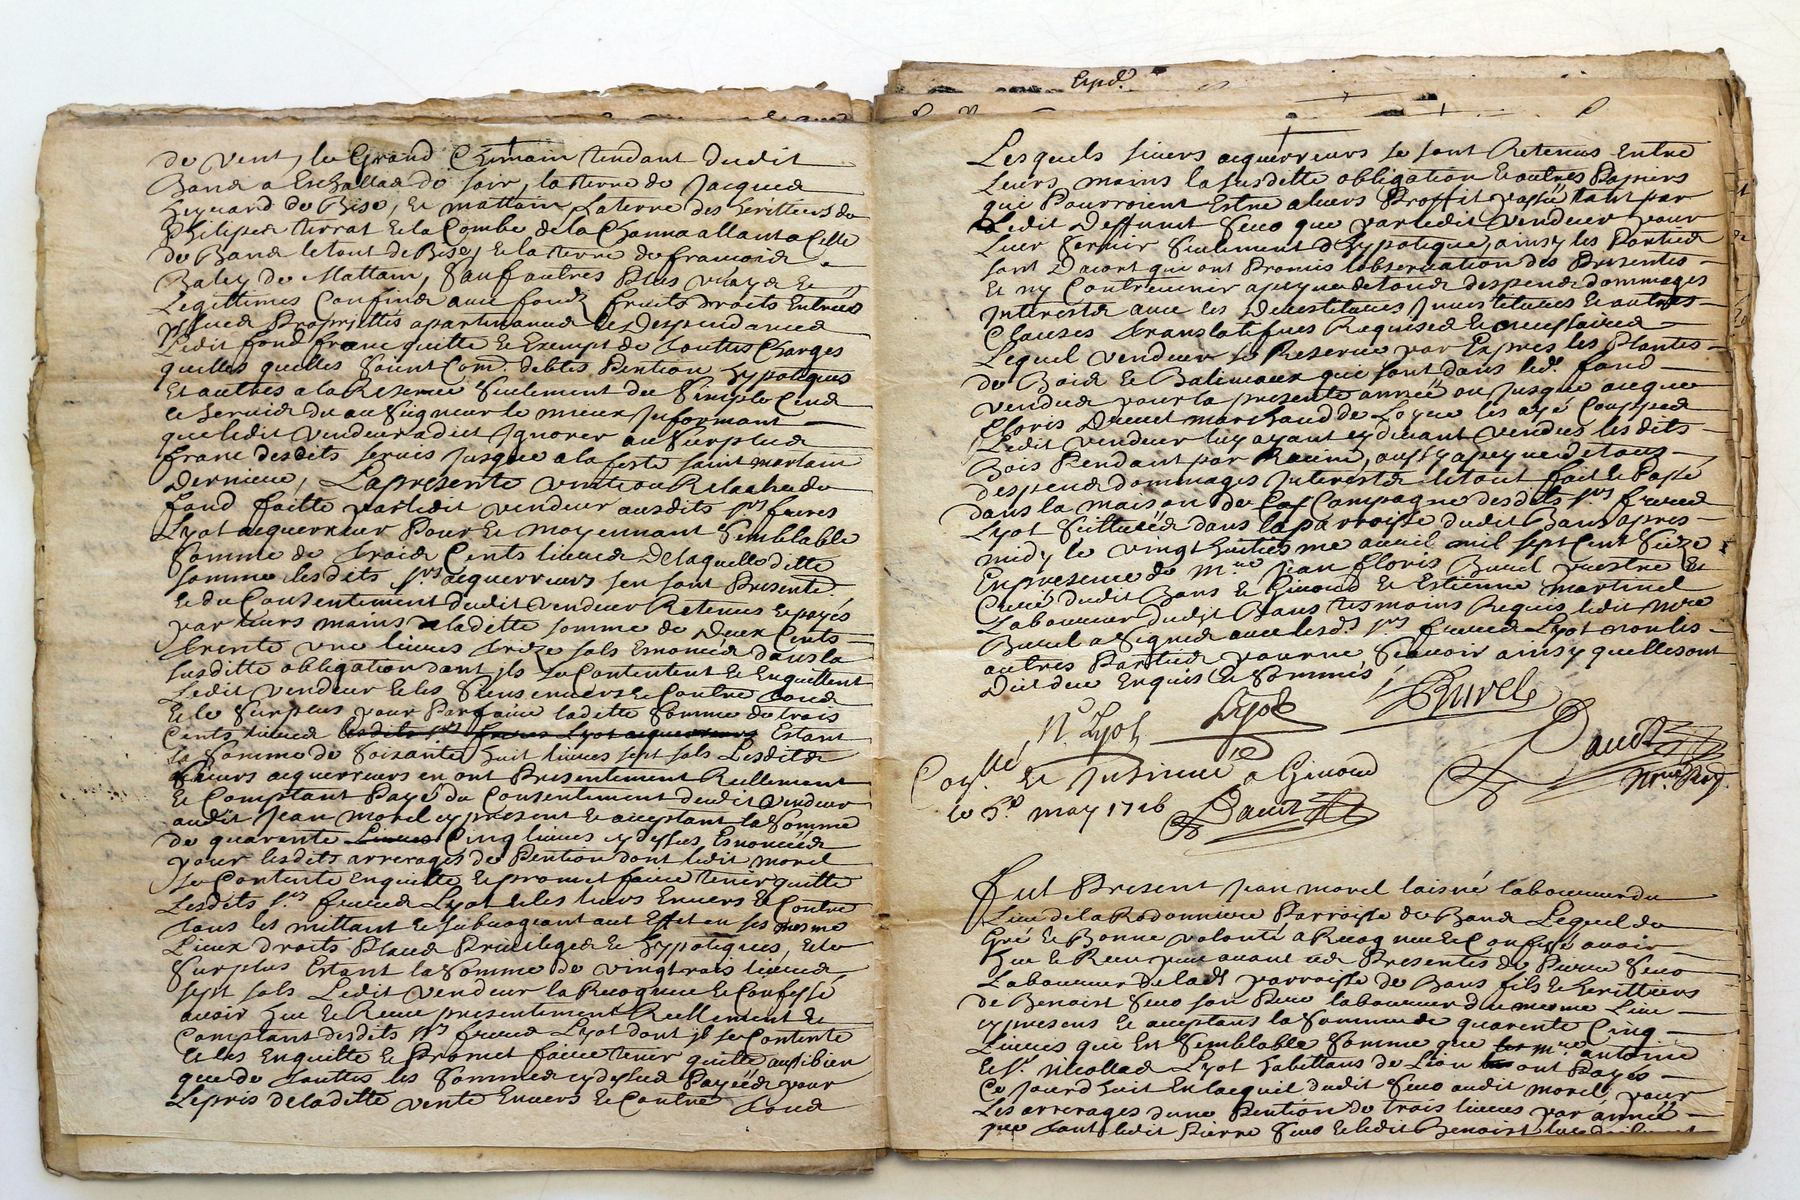 de vent, le Grand Chemain tendant dudit
Bans a Eschallas de soir, la terre de Jacques
de Bise, et mattain, la terre des heritiers de
Philiper terrat et la Combe de la Channa allant a Celle
de Bans le tout de Bise, et la terre de francois
Baley de Mattain, Sauf autres Plus vrays et
Legittimes Confins avec fonds fruits droits Entrées
yssues Proprietes apartenances et Despendances
Ledit fond franc quitte et Exempt de touttes Charges
quelles quelles Soint Com. debtes Pention hypoteques
Et autres a la Reserve Seulement du Simple Cens
et Servis du au Seigneur le mieux Informant
que ledit vendeur a dict Ignorer au Surplus
franc desdits servis Jusque a la feste saint martain
Derniere, La presente vente ou Relache de
fond faitte par ledit vendeur ausdits srs freres
Lyot acquerreur Pour et moyennant Semblable
Somme de trois Cents livres De laquelle ditte
somme lesdits srs acquerreurs sen sont Presenté
et du Consentement dudit vendeur Retenus et payés
par leurs mains laditte somme de Deux Cents
trente une livres treze sols Enoncés dans la
susditte obligation dont ils se Contentent et Enquittent
Ledit vendeur et les Siens envers et Contre tous
Et le Surplus pour Parfaire laditte Somme de trois
Cents livres lesdits srs freres Lyot acquerreurs Estant
la Somme de Soixante huit livres sept sols Lesdits
sieurs acquerreurs en ont Presentement Reellement
et Comptant Payé du Consentement dudit vendeur
audit Jean morel cy present et acceptant la Somme
de quarente Livres Cinq livres cy dessus Enoncée
pour lesdits arrerages de Pention dont ledit morel
se Contente Enquitte et promet faire tenir quitte
Lesdits srs freres Lyot et les leurs Envers et Contre
tous les mettant et Subrogeant aut Effet en ses mesme
Lieux droits Places Privileges et hypoteques, et le
Surplus Estant la Somme de vingt trois livres
sept sols Ledit vendeur la Recognu et Confessé
avoir heu et Receu presentement Reellement et
Comptant desdits srs freres Lyot dont il se Contente
et les Enquitte et Promet faire tenir quitte, aussi bien
que de touttes les Sommes cy dessus Payées pour
Le pris de laditte vente Envers et Contre tous
Expd.
Lesquels sieurs acquerreurs se sont Retenus Entre
Leurs mains la susditte obligation et autres Papiers
qui Pourroient Estre a leurs Proffit tant par
Ledit Deffunt Seuo que par ledit vendeur pour
Leur Servir Seulement d'hypoteque, ainsy les Parties
sont D'acort qui ont Promis lobservation des Presentes
Et ny Contrevenir a peyne de tous despens dommages
Interests avec les Devestitures Investitures et autres
Clauses translatifves Requises et necessaires
Lequel vendeur se Reserve par Expres les Plantes
de Bois et Baliveaux qui sont dans led. fond
vendus pour la presente année ou Jusque a ce que
floris Drevet marchand de Loyre les ayé Couppes
Ledit vendeur luy ayant cy devant vendus lesdits
Bois Pendant par Racine, aussy a peyne de tous
despens dommages Interests le tout fait et Passé
dans la maison de Campagne desdits srs freres
Lyot Scittuée dans la parroisse dudit Bans apres
midy le vingt huitiesme avril mil sept Cent Sieze
En presence de mre Jean floris Buvel prestre et
Curé dudit Bans et Givord et Estienne martinel
Laboureur dudit Bans tesmoins Requis ledit mre
Buvel a Signé avec lesds srs freres Lyot non les
autres Parties pour ne Scavoir ainsy quelles ont
Dit de ce Enquis et Sommés
N. Lyot Lyot Buvel
Dauet
nore Roy.
Conllé et Insinué a Givord
le 5e may 1716 Dauet
fut Present Jean morel laisné laboureur du
Lieu de la Rodonniere Parroisse de Bans Lequel de
Gré et Bonne volonté a Recognu et Confessé avoir
heu et Receu avant ces Presentes de Pierre Seuo
Laboureur de lad. parroisse de Bans fils et heritiers
de Benoist Seuo son Pere laboureur du mesme Lieu
cy present et acceptant la Somme de quarente Cinq
Livres qui Est Semblable Somme que les mre antoine
et Sr. nicollas Lyot habittans de Lion ont Payés
Ce Jourdhuit En lacquit dudit Seuo audit morel, pour
Les arrerages dune Pention de trois livres par année
que tant ledit Pierre Seuo et ledit Benoist